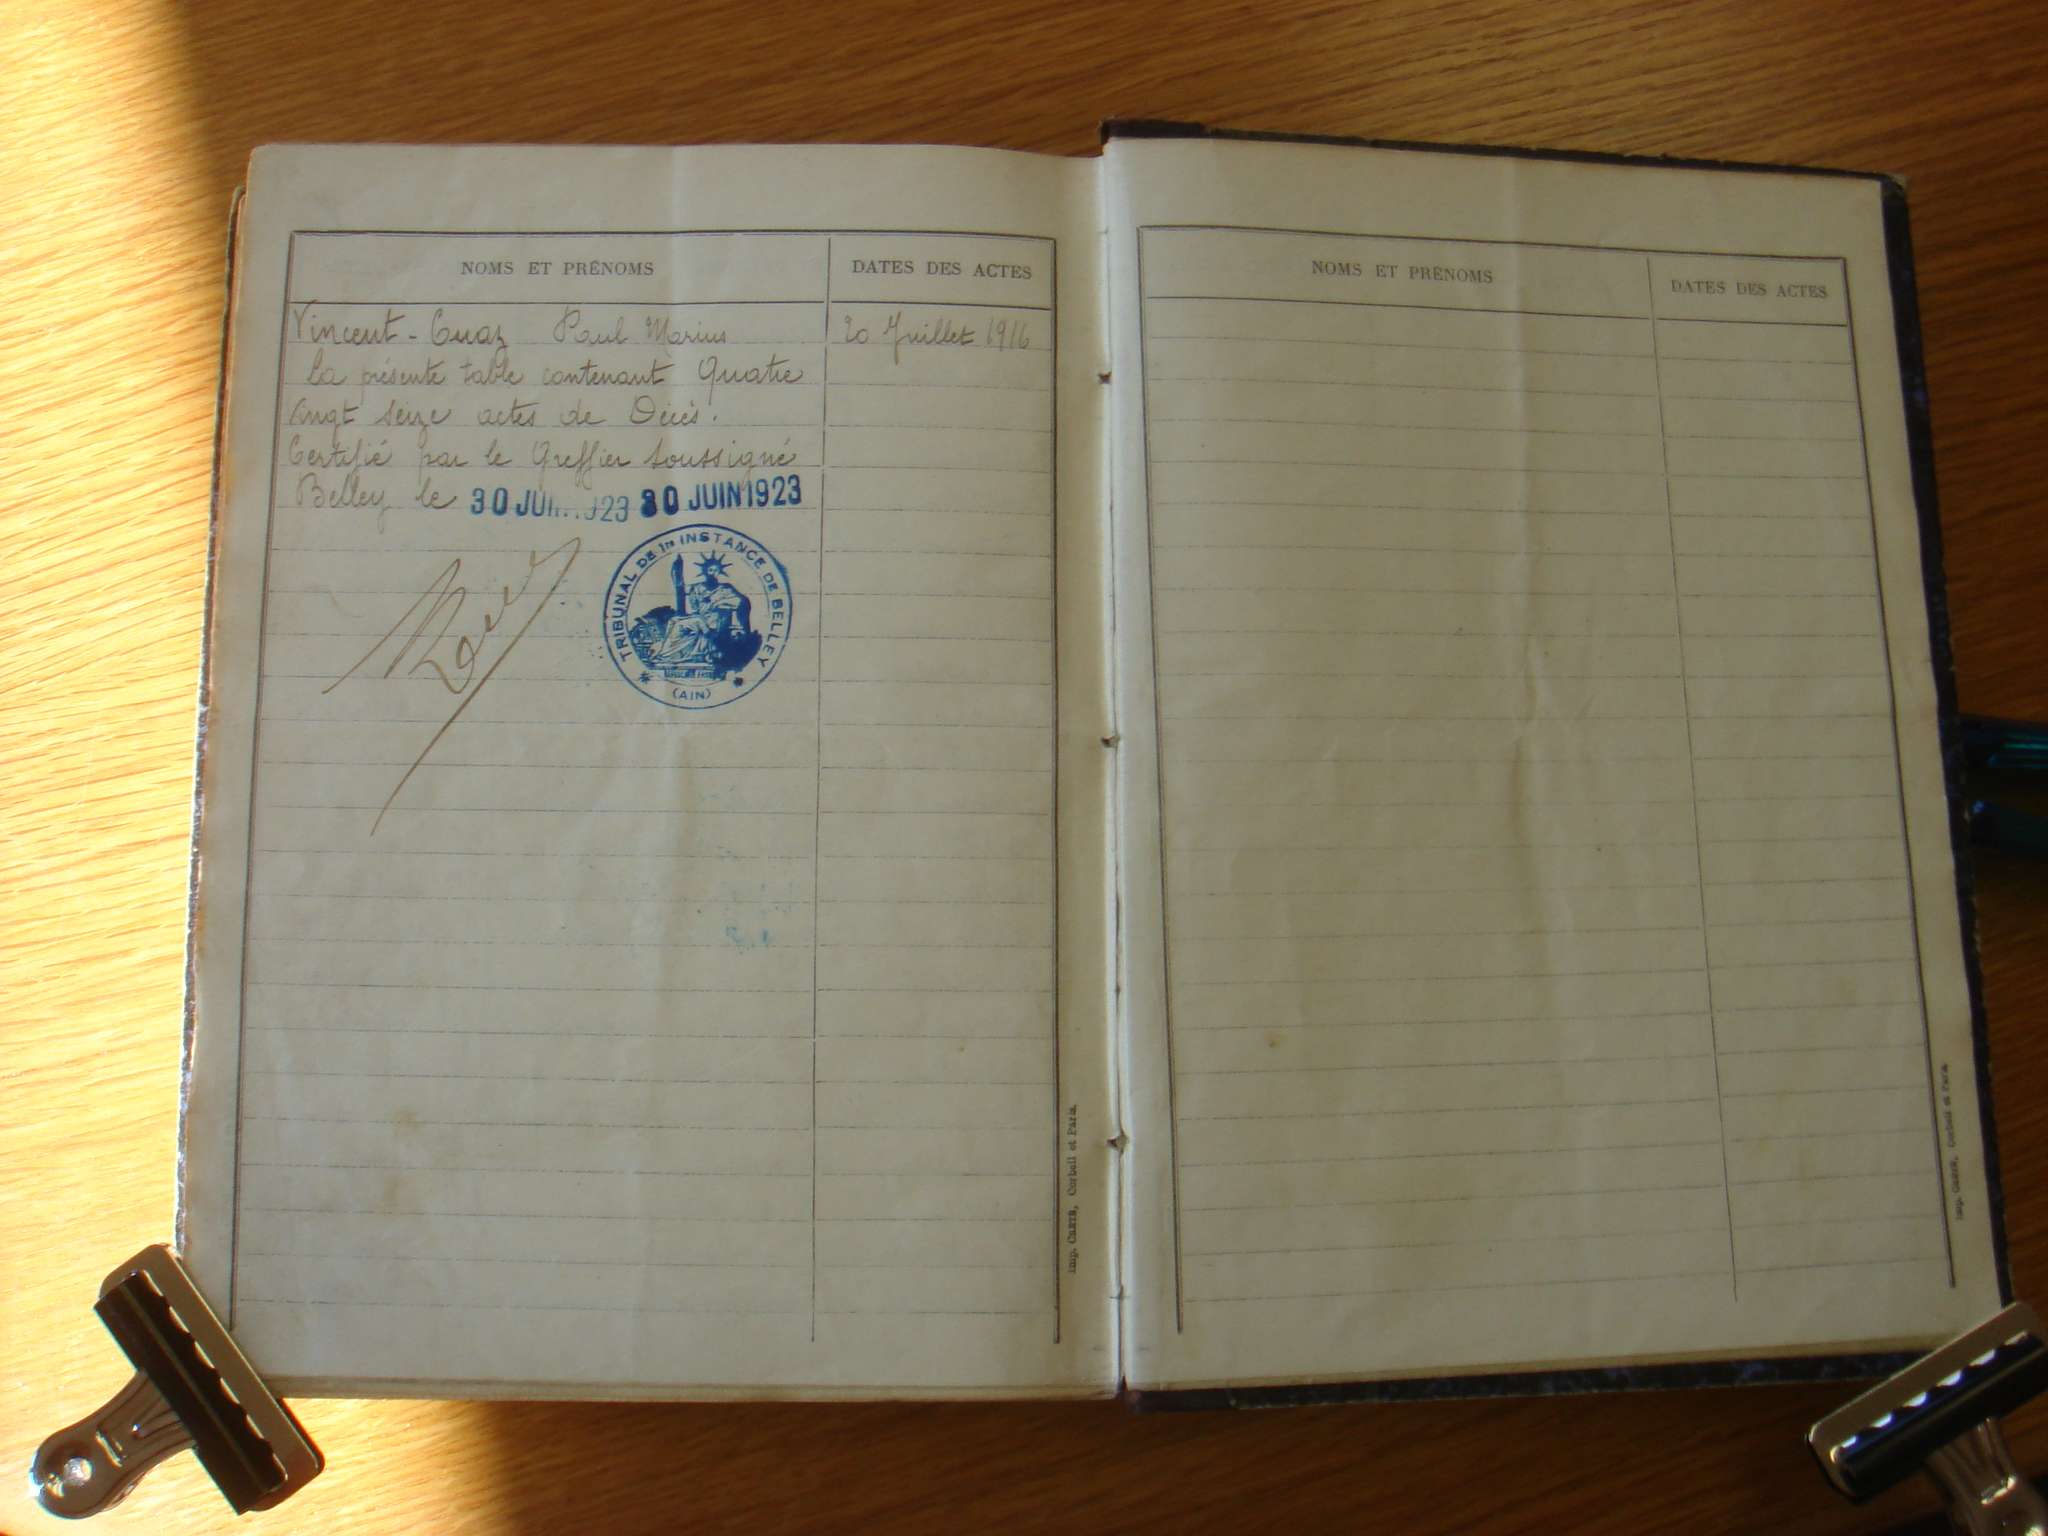 NOMS ET PRÉNOMS
DATES DES ACTES
Vincent-Cuaz Paul Marius
20 Juillet 1916
La présente table contenant Quatre
vingt seize actes de Décès.
Certifié par le Greffier soussigné
Belley le 30 JUIN 1923 30 JUIN 1923
TRIBUNAL DE 1re INSTANCE DE BELLEY
(AIN)
Imp. CRETÉ, Corbeil et Paris.
NOMS ET PRÉNOMS
DATES DES ACTES
Imp. CRETÉ, Corbeil et Paris.